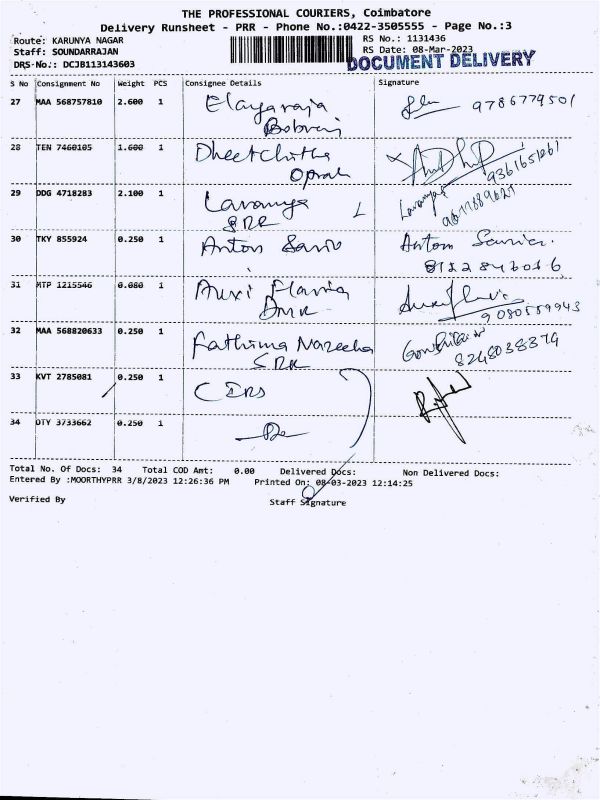 THE PROFESSIONAL COURIERS, Coimbatore
Delivery Runsheet - PRR - Phone No.:0422-3505555 - Page No.:3
Route: KARUNYA NAGAR
RS No.: 1131436
Staff: SOUNDARRAJAN
RS Date: 08-Mar-2023
DRS-No.: DCJB113143603
DOCUMENT DELIVERY
S No Consignment No Weight PCS Consignee Details Signature
27 MAA 568757810 2.600 1 Elayaraja 9786779501
28 TEN 7460105 1.600 1
29 DDG 4718283 2.100 1 Lavanya
SRK
30 TKY 855924 0.250 1 Anton Antom
31 MTP 1215546 0.080 1 Auxi Flavia
9080559943
32 MAA 568820633 0.250 1 Fathima
SRK 8248038379
33 KVT 2785081 0.250 1
34 OTY 3733662 0.250 1
Total No. Of Docs: 34 Total COD Amt: 0.00 Delivered Docs: Non Delivered Docs:
Entered By :MOORTHYPRR 3/8/2023 12:26:36 PM Printed On: 08-03-2023 12:14:25
Verified By Staff Signature